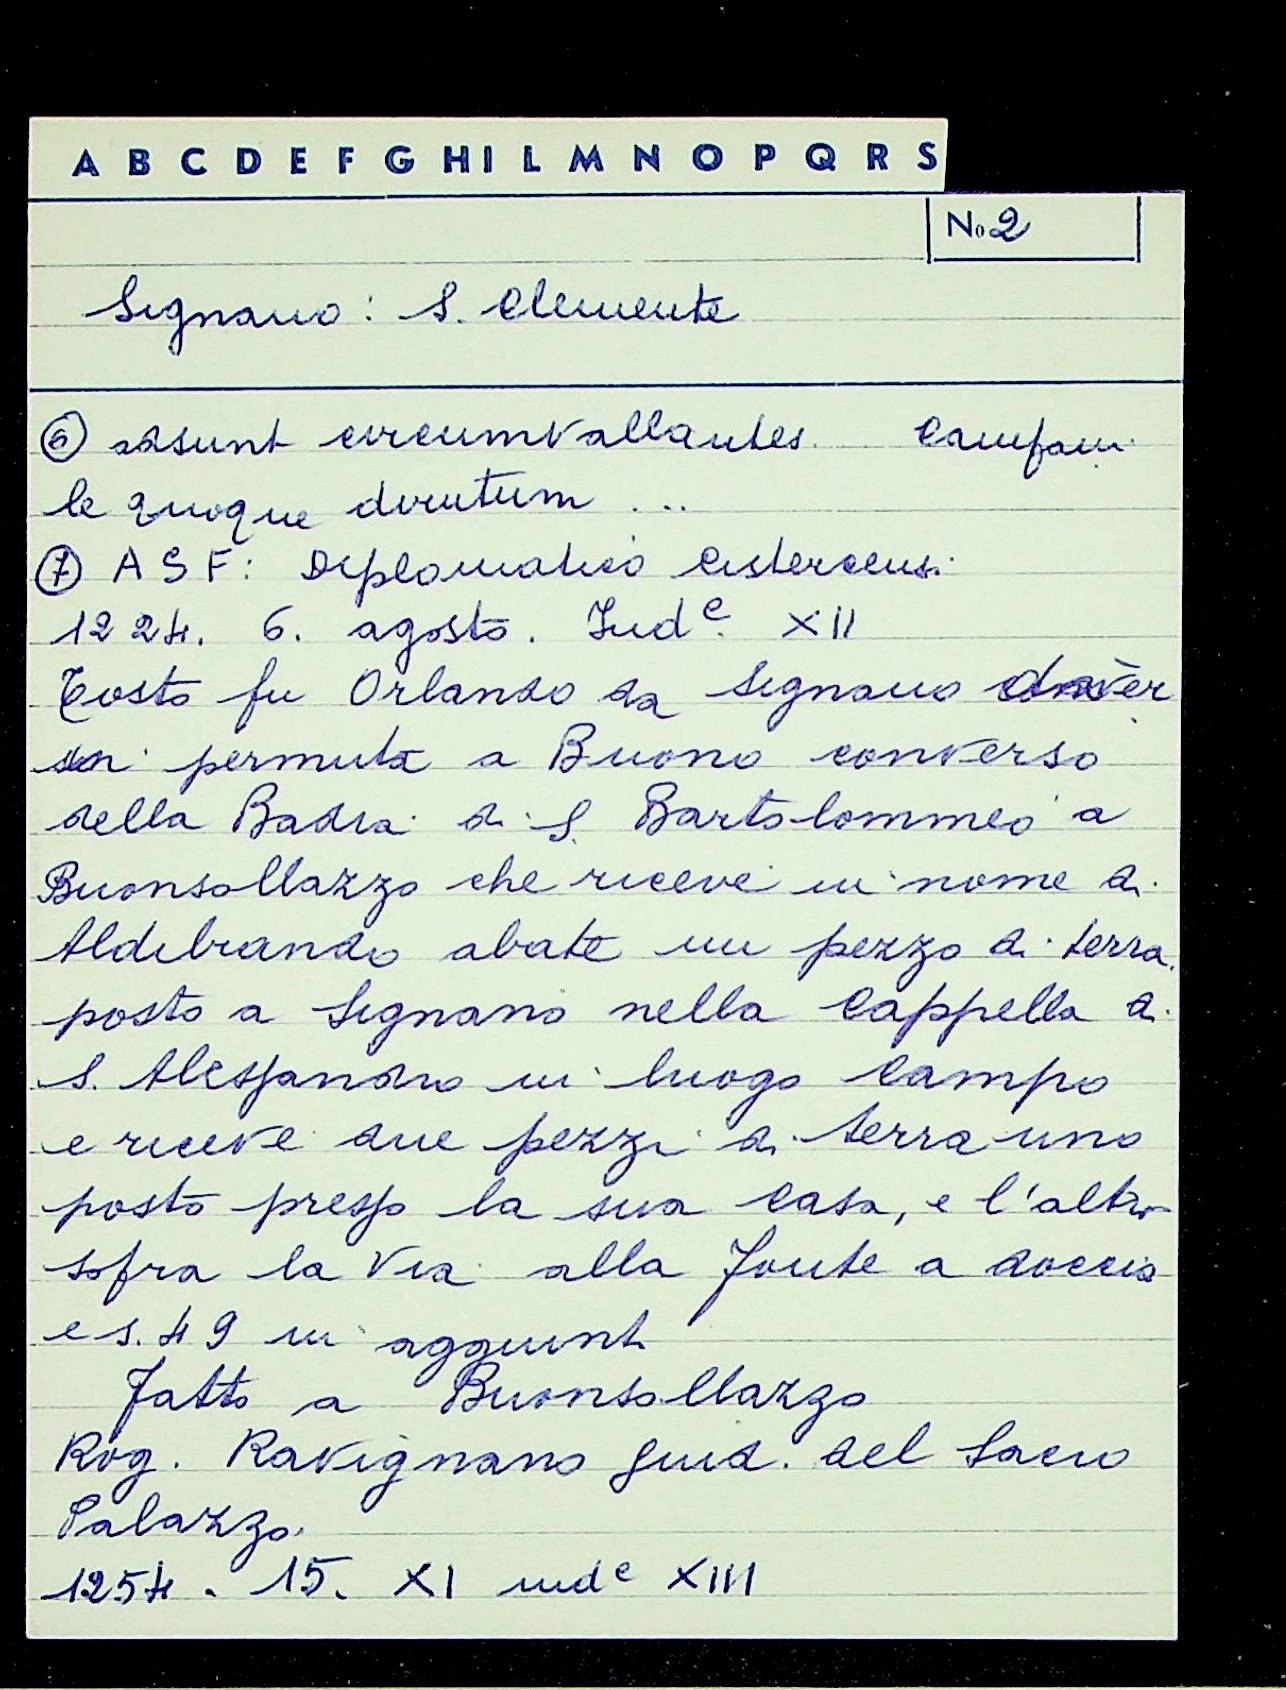 A B C D E F G H I L M N O P Q R S
No 2
Signano: S. Clemente
⑥ adsunt circumvallantes. Campani
le quoque dirutum ...
⑦ ASF: Diplomatico Cistercensi
1224. 6. agosto. Ind.e XII
Tosto fu Orlando da Signano
permuta a Buono converso
della Badia di S. Bartolommeo a
Buonsollazzo che riceve in nome di
Aldibrando abate un pezzo di terra
posto a Signano nella Cappella di
S. Alessandro in luogo Campo
e riceve due pezzi di terra uno
posto presso la sua casa, e l'altro
sopra la Via alla Fonte a doccia
e s. 49 in aggiunt.
Fatto a Buonsollazzo
Rog. Ravignano giud. del Sacro
Palazzo.
1254. 15. XI ind.e XIII